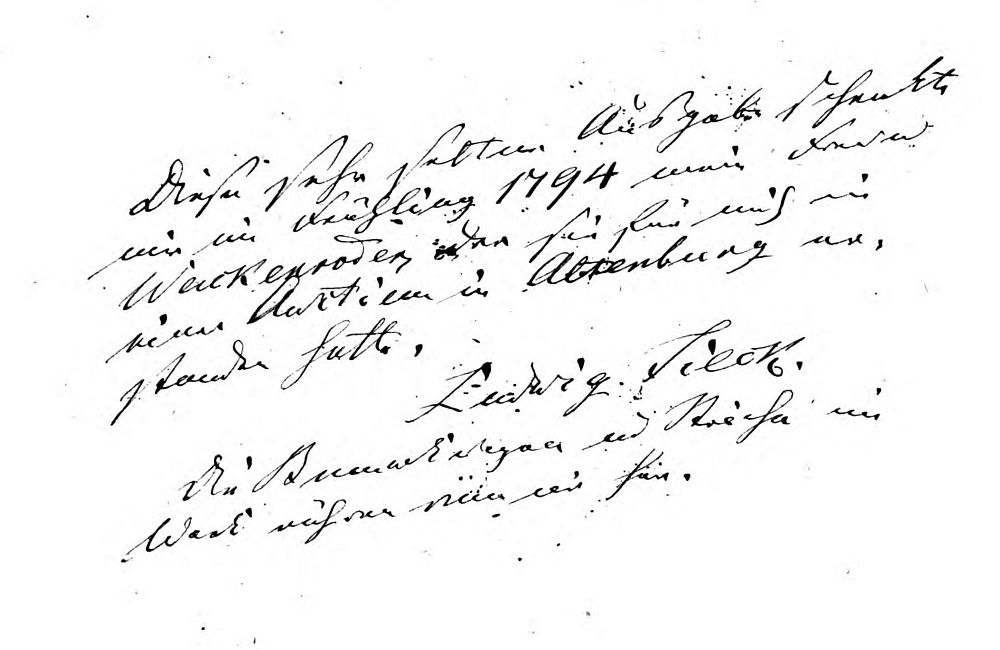 Diese sehr seltne Ausgabe schenkte
mir im Frühling 1794 mein Freund
Wackenroder, der sie für mich in
einer Auktion in Altenburg er-
standen hatte.
Ludwig Tieck.
Die Bemerkungen und Striche im
Werk rühren von mir her.